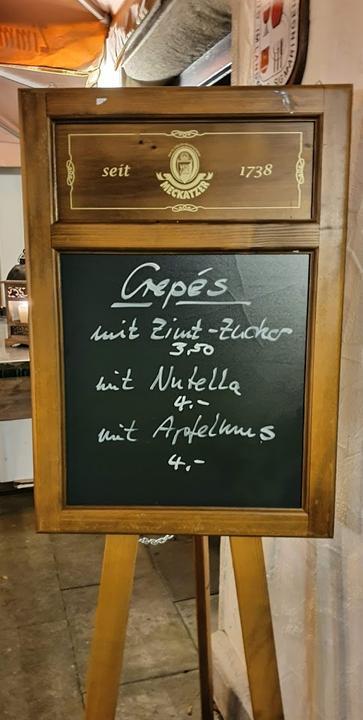 seit
MECKATZER
1738
Crepés
mit Zimt-Zucker
3,50
mit Nutella
4,-
mit Apfelmus
4,-